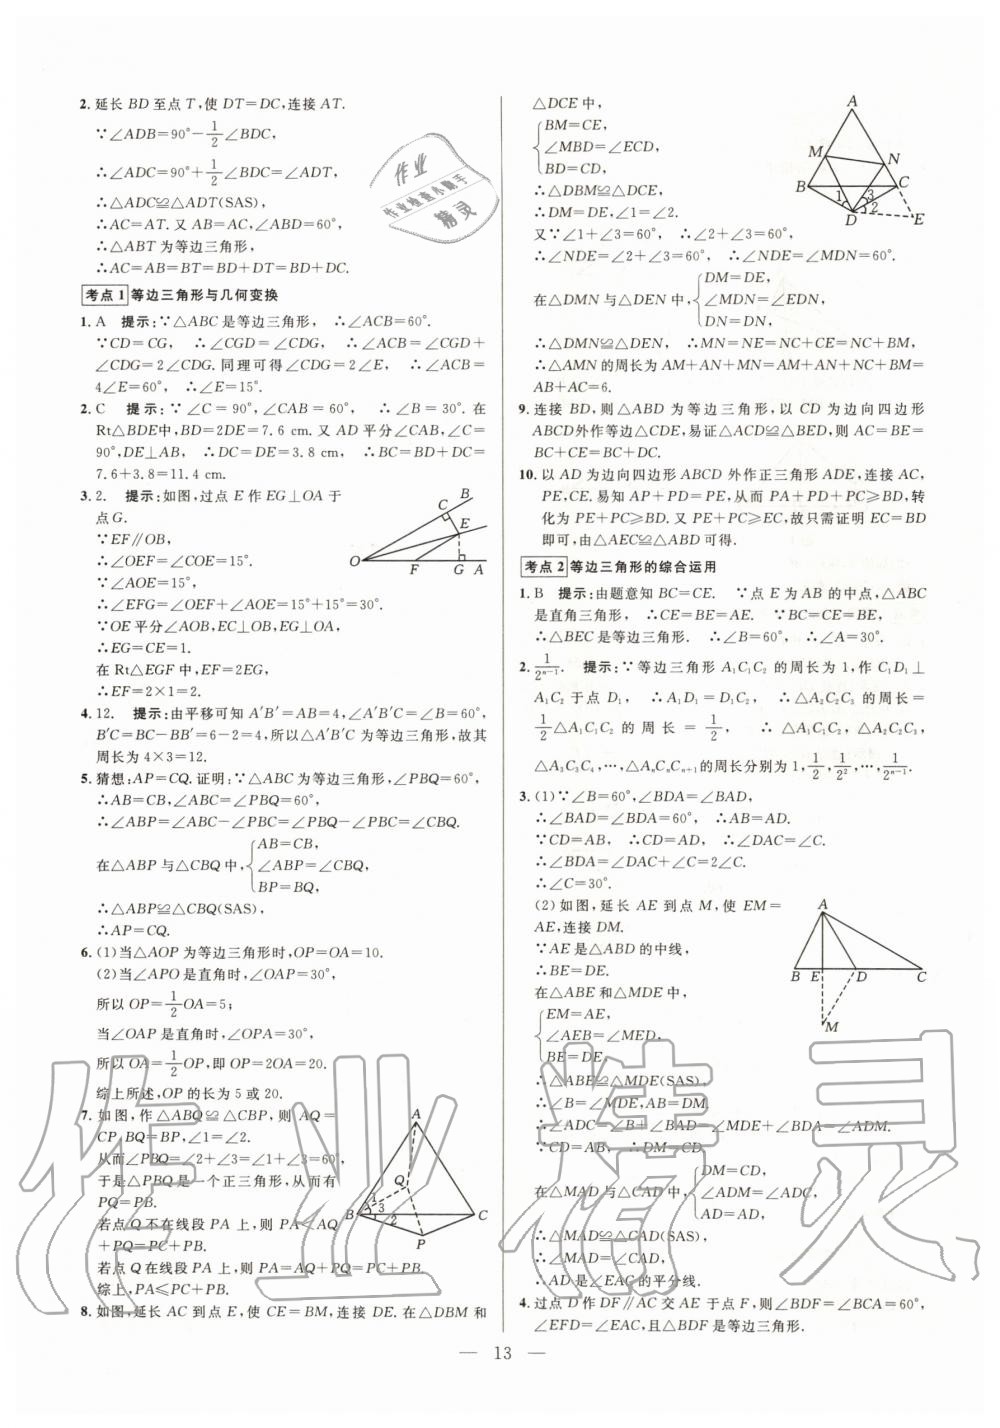 2. 延长 BD 至点 T,使 DT=DC,连接 AT.
∵∠ADB=90°−1/2∠BDC,
∴∠ADC=90°+1/2∠BDC=∠ADT,
∴△ADC≌△ADT(SAS),
∴AC=AT. 又 AB=AC,∠ABD=60°,
∴△ABT 为等边三角形,
∴AC=AB=BT=BD+DT=BD+DC.
考点 1 等边三角形与几何变换
1. A 提示:∵△ABC 是等边三角形, ∴∠ACB=60°.
∵CD=CG, ∴∠CGD=∠CDG, ∴∠ACB=∠CGD+
∠CDG=2∠CDG. 同理可得∠CDG=2∠E, ∴∠ACB=
4∠E=60°, ∴∠E=15°.
2. C 提示:∵∠C=90°,∠CAB=60°, ∴∠B=30°. 在
Rt△BDE中,BD=2DE=7.6 cm. 又 AD 平分∠CAB,∠C=
90°,DE⊥AB, ∴DC=DE=3.8 cm, ∴BC=BD+DC=
7.6+3.8=11.4 cm.
3. 2. 提示:如图,过点 E 作 EG⊥OA 于
点G.
∵EF∥OB,
∴∠OEF=∠COE=15°.
∵∠AOE=15°,
∴∠EFG=∠OEF+∠AOE=15°+15°=30°.
∵OE平分∠AOB,EC⊥OB,EG⊥OA,
∴EG=CE=1.
在 Rt△EGF 中,EF=2EG,
∴EF=2×1=2.
B
C
E
O
F
G
A
4. 12. 提示:由平移可知 A′B′=AB=4,∠A′B′C=∠B=60°,
B′C=BC−BB′=6−2=4,所以△A′B′C 为等边三角形,故其
周长为 4×3=12.
5. 猜想:AP=CQ. 证明:∵△ABC 为等边三角形,∠PBQ=60°,
∴AB=CB,∠ABC=∠PBQ=60°.
∴∠ABP=∠ABC−∠PBC=∠PBQ−∠PBC=∠CBQ.
在△ABP 与△CBQ 中,{AB=CB,
∠ABP=∠CBQ,
BP=BQ,
∴△ABP≌△CBQ(SAS),
∴AP=CQ.
6. (1)当△AOP 为等边三角形时,OP=OA=10.
(2)当∠APO 是直角时,∠OAP=30°,
所以 OP=1/2OA=5;
当∠OAP 是直角时,∠OPA=30°,
所以 OA=1/2OP,即 OP=2OA=20.
综上所述,OP 的长为 5 或 20.
7. 如图,作△ABQ≌△CBP,则 AQ=
CP,BQ=BP,∠1=∠2.
从而∠PBQ=∠2+∠3=∠1+∠3=60°,
于是△PBQ 是一个正三角形,从而有
PQ=PB.
若点 Q 不在线段 PA 上,则 PA<AQ
+PQ=PC+PB.
若点 Q在线段 PA 上,则 PA=AQ+PQ=PC+PB.
综上,PA≤PC+PB.
A
Q
1
3
2
B
C
P
8. 如图,延长 AC 到点 E,使 CE=BM,连接 DE. 在△DBM 和
△DCE 中,
{BM=CE,
∠MBD=∠ECD,
BD=CD,
∴△DBM≌△DCE,
∴DM=DE,∠1=∠2.
又∵∠1+∠3=60°, ∴∠2+∠3=60°,
∴∠NDE=∠2+∠3=60°, ∴∠NDE=∠MDN=60°.
A
M
N
B
C
1
3
2
D
E
在△DMN 与△DEN 中,{DM=DE,
∠MDN=∠EDN,
DN=DN,
∴△DMN≌△DEN, ∴MN=NE=NC+CE=NC+BM,
∴△AMN 的周长为 AM+AN+MN=AM+AN+NC+BM=
AB+AC=6.
9. 连接 BD,则△ABD 为等边三角形,以 CD 为边向四边形
ABCD外作等边△CDE,易证△ACD≌△BED,则 AC=BE=
BC+CE=BC+DC.
10. 以 AD 为边向四边形 ABCD 外作正三角形 ADE,连接 AC,
PE,CE. 易知 AP+PD=PE,从而 PA+PD+PC≥BD,转
化为 PE+PC≥BD. 又 PE+PC≥EC,故只需证明 EC=BD
即可,由△AEC≌△ABD 可得.
考点 2 等边三角形的综合运用
1. B 提示:由题意知 BC=CE. ∵点 E 为 AB 的中点,△ABC
是直角三角形, ∴CE=BE=AE. ∵BC=CE=BE,
∴△BEC 是等边三角形. ∴∠B=60°, ∴∠A=30°.
2. 1/2ⁿ⁻¹. 提示:∵等边三角形 A₁C₁C₂ 的周长为 1,作 C₁D₁⊥
A₁C₂ 于点 D₁, ∴A₁D₁=D₁C₂, ∴△A₂C₂C₃ 的周长=
1/2△A₁C₁C₂ 的周长=1/2, ∴△A₁C₁C₂,△A₂C₂C₃,
△A₃C₃C₄,…,△AₙCₙCₙ₊₁的周长分别为 1,1/2,1/2²,…,1/2ⁿ⁻¹.
3. (1)∵∠B=60°,∠BDA=∠BAD,
∴∠BAD=∠BDA=60°, ∴AB=AD.
∵CD=AB, ∴CD=AD. ∴∠DAC=∠C.
∴∠BDA=∠DAC+∠C=2∠C.
∴∠C=30°.
(2)如图,延长 AE 到点 M,使 EM=
AE,连接 DM.
∵AE 是△ABD 的中线,
∴BE=DE.
在△ABE 和△MDE 中,
{EM=AE,
∠AEB=∠MED,
BE=DE,
∴△ABE≌△MDE(SAS),
∴∠B=∠MDE,AB=DM,
∴∠ADC=∠B+∠BAD=∠MDE+∠BDA=∠ADM.
∵CD=AB, ∴DM=CD.
A
B
E
D
C
M
在△MAD 与△CAD 中,{DM=CD,
∠ADM=∠ADC,
AD=AD,
∴△MAD≌△CAD(SAS)
∴∠MAD=∠CAD,
∴AD 是∠EAC 的平分线.
4. 过点 D 作 DF∥AC 交 AE 于点 F,则∠BDF=∠BCA=60°,
∠EFD=∠EAC,且△BDF 是等边三角形.
— 13 —
作业
作业检查小助手
精灵
作业精灵